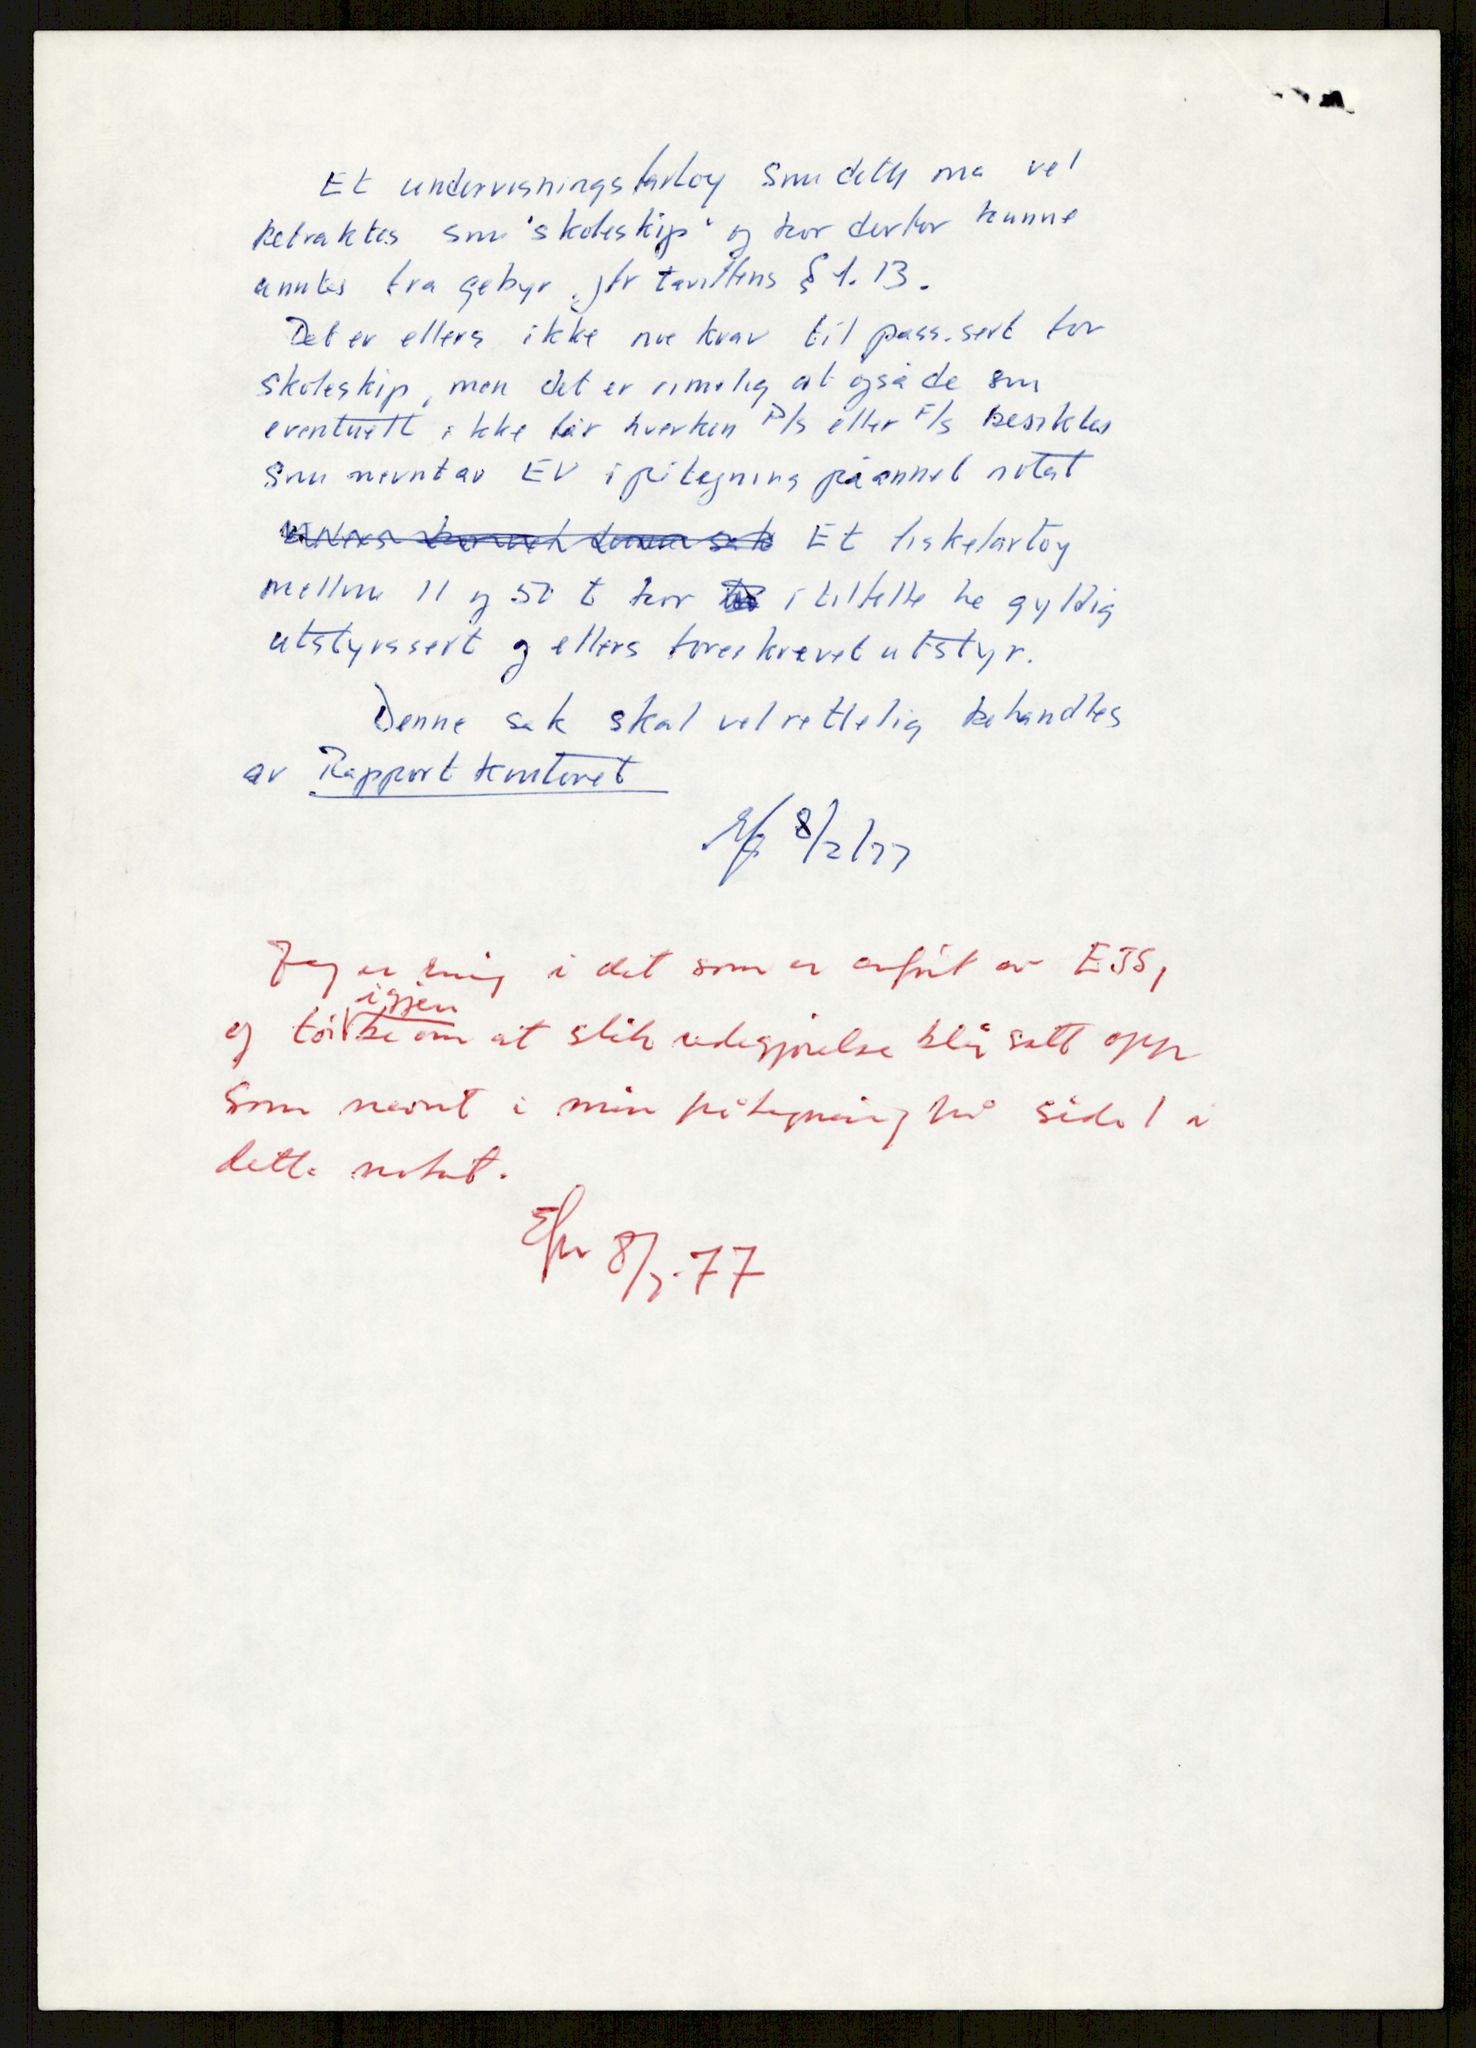 Et undervisningsfartøy som dette må vel
betraktes som "skoleskip" og bør derfor kunne
unntas fra gebyr, jfr tariffens § 1.13.
Det er ellers ikke noe krav til pass.sert for
skoleskip, men det er rimelig at også de som
eventuelt ikke får hverken P/s eller F/s besiktes
som nevnt av EV i påtegning på annet notat
Et fiskefartøy
mellom 11 og 50 t bør i tilfelle ha gyldig
utstyrssert og ellers foreskrevet utstyr.
Denne sak skal vel rettelig behandles
av Rapportkontoret
8/2/77
Jeg er enig i det som er anført av EJS,
igjen
og tør be om at slik redegjørelse blir satt opp
som nevnt i min påtegning på side 1 i
dette notat.
8/2.77